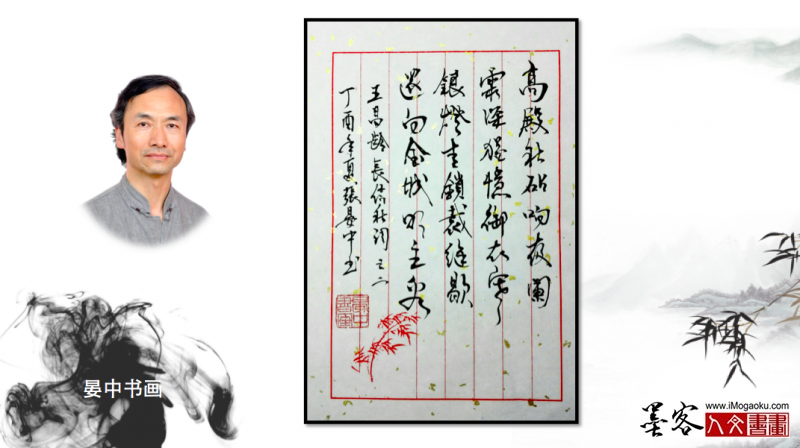 高殿秋砧响夜阑
霜深猶憶御衣寒
銀燈青鎖裁縫歇
還向金城明主看
王昌齡長信秋词之二
丁酉年夏張晏中书
晏中书画
墨客
www.iMogaoku.com
人文書畫